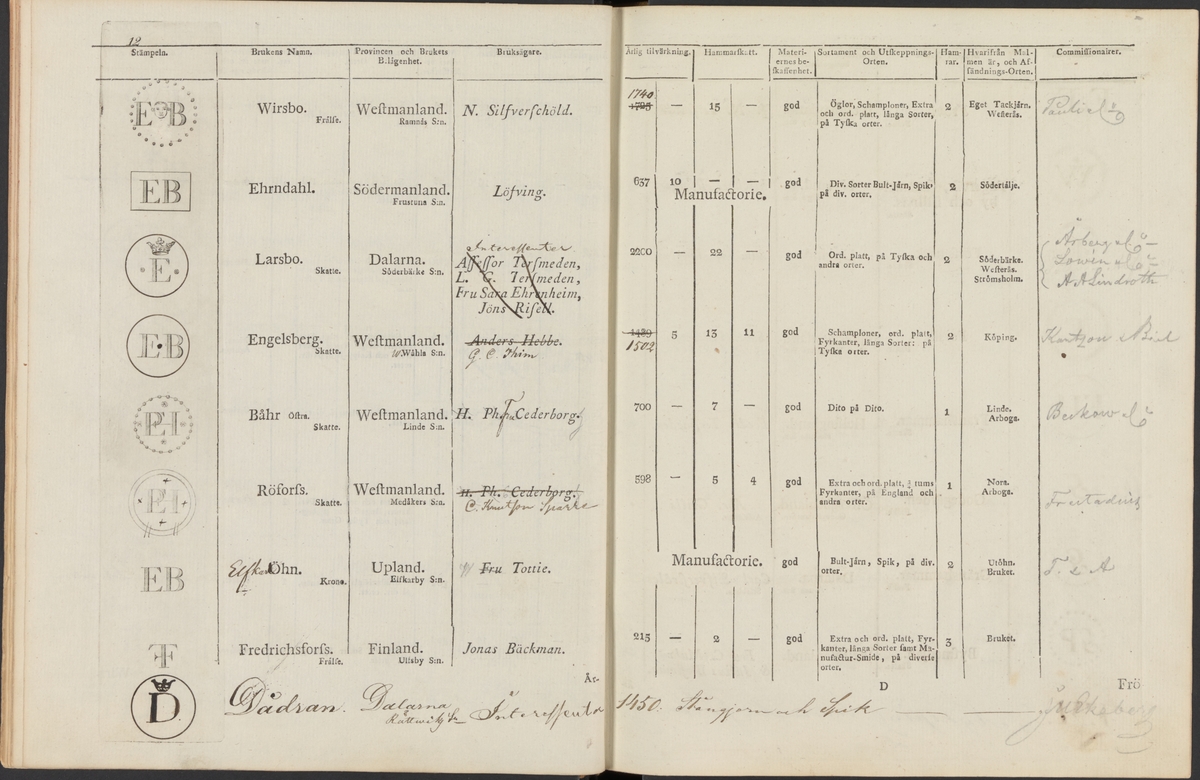 12
Stämpeln. Brukens Namn. Provincen och Brukets Belägenhet. Bruksägare.
Årlig tilvärkning. Hammarskatt. Materiernes beskaffenhet. Sortament och Utskeppnings-Orten. Hamrar. Hvarifrån Malmen är, och Afsändnings-Orten. Commissionairer.
E B
Wirsbo.
Frälse.
Westmanland.
Ramnäs S:n.
N. Silfverschöld.
1740
1725 — 15 — god
Öglor, Schamploner, Extra
och ord. platt, långa Sorter,
på Tyska orter.
2
Eget Tackjärn.
Westerås.
EB
Ehrndahl.
Södermanland.
Frustuna S:n.
Löfving.
637 10 — — god
Manufactorie.
Div. Sorter Bult-Järn, Spik,
på div. orter.
2
Södertälje.
E
Larsbo.
Skatte.
Dalarna.
Söderbärke S:n.
Interessenter
Assessor Tersmeden,
L. G. Tersmeden,
Fru Sara Ehrenheim,
Jöns Risell.
2200 — 22 — god
Ord. platt, på Tyska och
andra orter.
2
Söderbärke.
Westerås.
Strömsholm.
A A Lindroth
E B
Engelsberg.
Skatte.
Westmanland.
W. Wåhla S:n.
Anders Hebbe.
G. C. Thim
1439 5 13 11 god
1502
Schamploner, ord. platt,
Fyrkanter, långa Sorter: på
Tyska orter.
2
Köping.
Båhr Östra.
Skatte.
Westmanland.
Linde S:n.
H. Ph. Cederborg.
700 — 7 — god
Dito på Dito.
1
Linde.
Arboga.
Röforss.
Skatte.
Westmanland.
Medåkers S:n.
H. Ph. Cederborg.
C. Knutson Sparre
598 — 5 4 god
Extra och ord. platt, ¾ tums
Fyrkanter, på England och
andra orter.
1
Nora.
Arboga.
EB
Öhn.
Krono.
Upland.
Elfkarby S:n.
Fru Tottie.
Manufactorie. god
Bult-Järn, Spik, på div.
orter.
2
Utöhn.
Bruket.
T. & A
Fredrichsforss.
Frälse.
Finland.
Ulfsby S:n.
Jonas Bäckman.
215 — 2 — god
Extra och ord. platt, Fyrkanter,
långa Sorter samt Manufactur-Smide,
på diverse
orter.
3
Bruket.
Åt-
D
Frö
D
Dådran. Dalarna
Rättwik S:n
Interessenter
1450. Stångjern och Spik